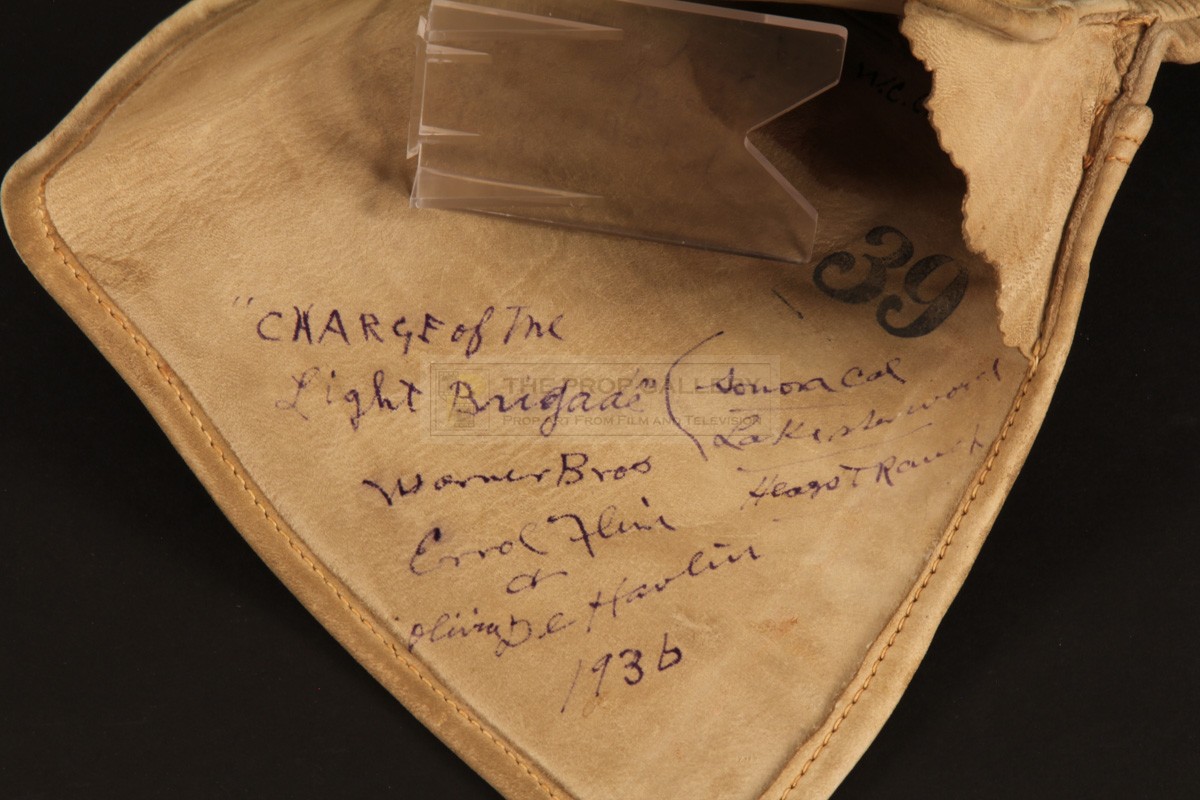 W.C.
39
"CHARGE of The
Light Brigade"
(Sonora Cal
Lake Sherwood
Hearst Ranch
Warner Bros
Errol Flin
&
Olivia De Havlin
1936
THE PROP GALLERY
PROP ART FROM FILM AND TELEVISION